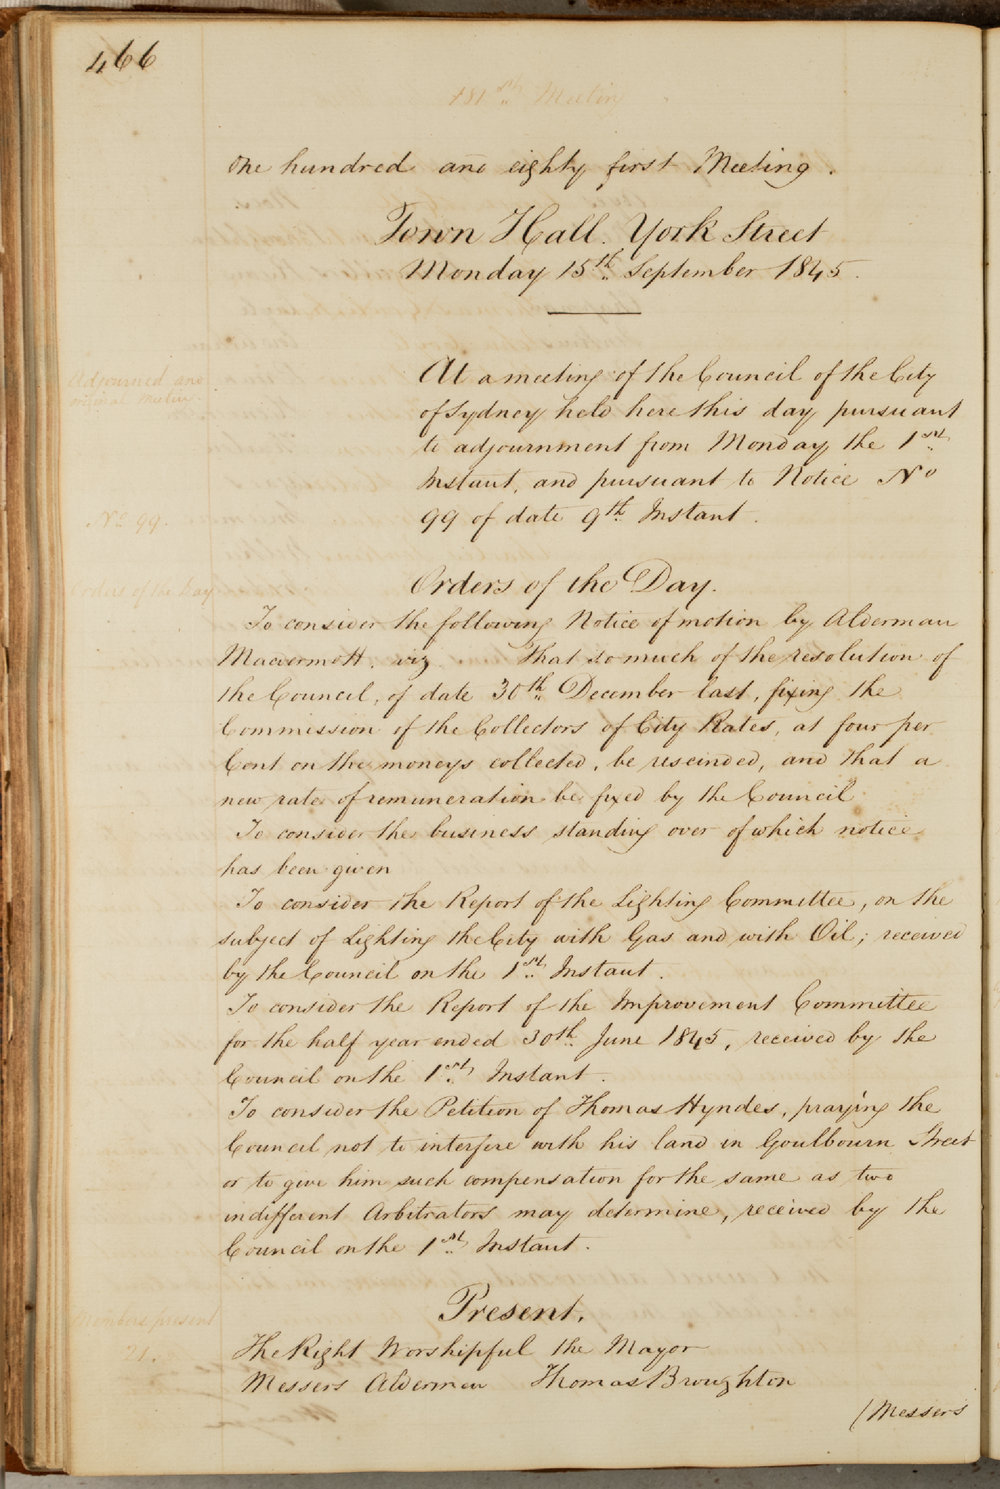 466
181st Meeting
One hundred and eighty first Meeting.
Town Hall. York Street
Monday 15th September 1845.
Adjourned and
special Meeting
At a meeting of the Council of the City
of Sydney held here this day pursuant
to adjournment from Monday the 1st
Instant, and pursuant to Notice No
99 of date 9th Instant.
No 99.
Orders of the Day
Orders of the Day.
To consider the following Notice of motion by Alderman
Macdermott. viz That so much of the resolution of
the Council, of date 30th December last, fixing the
Commission of the Collectors of City Rates, at four per
Cent on the moneys collected, be rescinded, and that a
new rate of remuneration be fixed by the Council
To consider the business standing over of which notice
has been given
To consider the Report of the Lighting Committee, on the
subject of Lighting the City with Gas and with Oil; received
by the Council on the 1st Instant.
To consider the Report of the Improvement Committee
for the half year ended 30th June 1845, received by the
Council on the 1st Instant.
To consider the Petition of Thomas Hyndes, praying the
Council not to interfere with his land in Goulbourn Street
or to give him such compensation for the same as two
indifferent Arbitrators may determine, received by the
Council on the 1st Instant.
Present.
Members present
21.
The Right Worshipful the Mayor
Messers Aldermen Thomas Broughton
(Messers